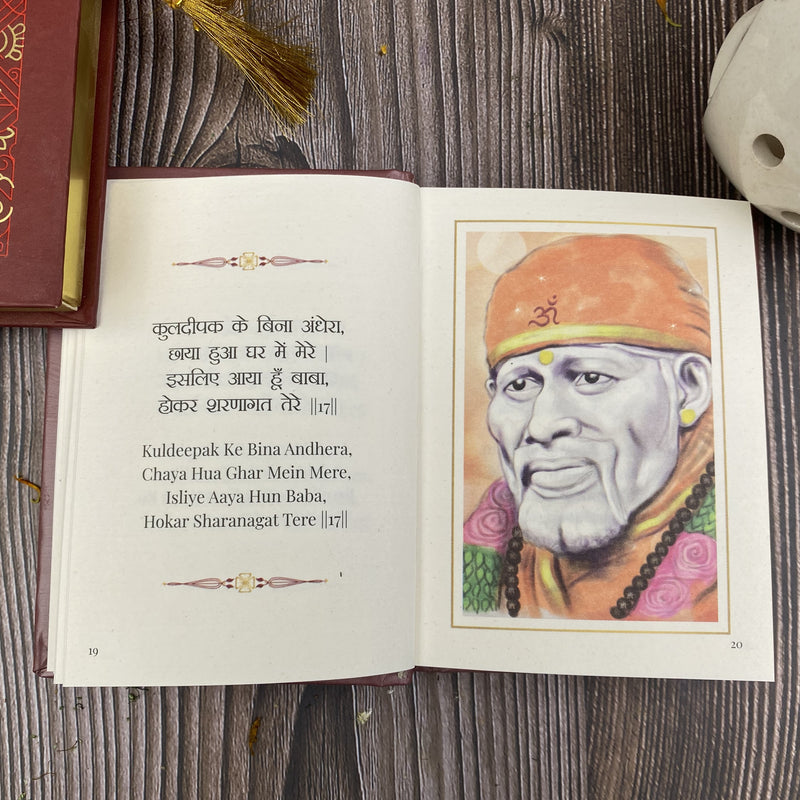 कुलदीपक के बिना अंधेरा,
छाया हुआ घर में मेरे |
इसलिए आया हूँ बाबा,
होकर शरणागत तेरे ||17||
Kuldeepak Ke Bina Andhera,
Chaya Hua Ghar Mein Mere,
Isliye Aaya Hun Baba,
Hokar Sharanagat Tere ||17||
19
ॐ
20